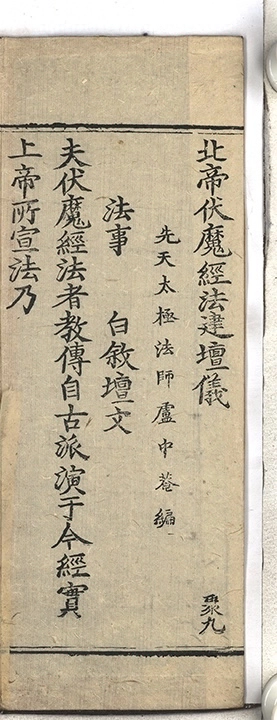 北帝伏魔經法建壇儀
再聚九
先天太極法師盧中菴編
法事 白敘壇文
夫伏魔經法者教傳自古派演于今經實
上帝所宣法乃